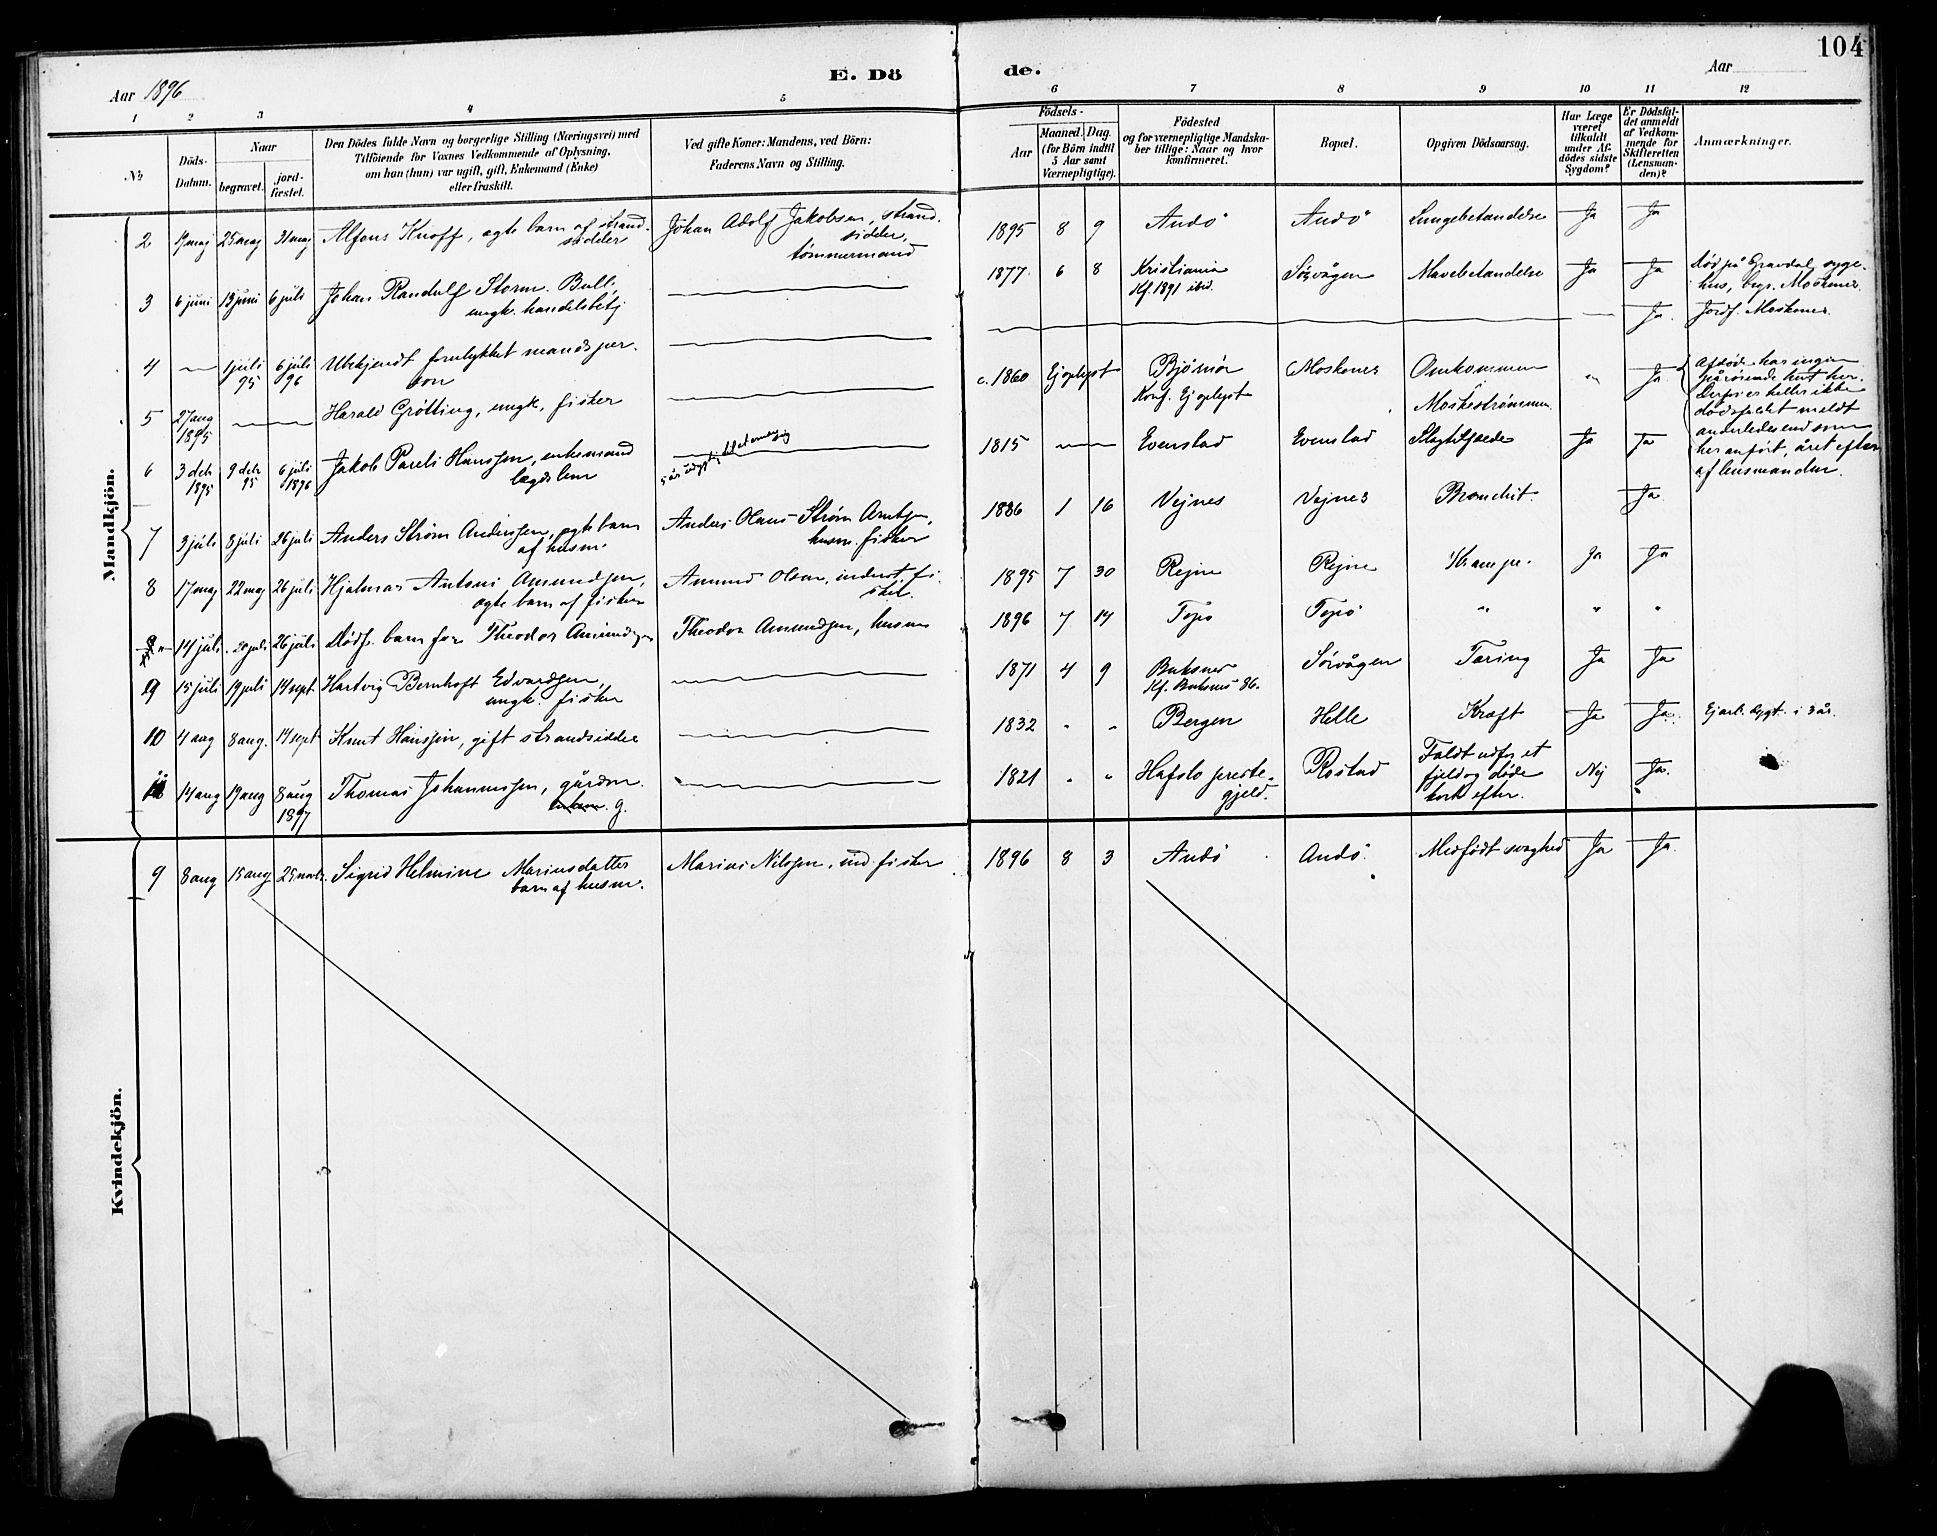 104
Aar 1896
E. Dö
de.
Aar
1 2 3 4 5 6 7 8 9 10 11 12
No
Döds-
Datum.
Naar
begravet.
jord-
fæstet.
Den Dödes fulde Navn og borgerlige Stilling (Næringsvei) med
Tilföiende for Voxnes Vedkommende af Oplysning,
om han (hun) var ugift, gift, Enkemand (Enke)
eller fraskilt.
Ved gifte Koner: Mandens, ved Börn:
Faderens Navn og Stilling.
Födsels-
Aar
Maaned.
Dag.
(for Börn indtil
5 Aar samt
Værnepligtige).
Födested
og for værnepligtige Mandska-
ber tillige: Naar og hvor
konfirmeret.
Bopæl.
Opgiven Dödsaarsag.
Har Læge
været
tilkaldt
under Af-
dödes sidste
Sygdom?
Er Dödsfal-
det anmeldt
af Vedkom-
mende for
Skifteretten
(Lensman-
den)?
Anmærkninger.
Mandkjön.
2 maj 25 maj 31 maj Alfons Knoff, ægte barn af strand- Johan Adolf Jakobsen, strand- 1895 8 9 Andö Andö Lungebetændelse Ja Ja
sidder sidder,
tömmermand
3 6 juni 13 juni 6 juli Johan Randulf Storm Bull, 1877 6 8 Kristiania Sörvågen Mavebetændelse Ja Ja död på Gravdal syge-
ungk. handelsbetj Kf. 1891 ibid. hus, begr. Moskenes.
4 1 juli 95 6 juli 96 Ubekjendt forulykket mandsper- Ja Jordf. Moskenes.
son
5 27 aug 1895 Harald Grötting, ungk, fisker c. 1860 Ej oplyst Bjørnör Moskenes Omkommen " Ja
Konf. Ej oplyst Moskeströmmen
Afdöde har ingen
pårørende kent her.
Derfor er heller ikke
dödsfaldet meldt
anderledes end som
her anfört, året efter
af lensmanden.
6 3 deb 1895 9 deb 95 6 juli 1896 Jakob Pareli Hanssen, enkemand 1815 Evenstad Evenstad Slagtilfælde Ja Ja
lægdslem
7 3 juli 8 juli 26 juli Anders Ström Anderssen, ægte barn Anders Olaus Ström Arntsen, 1886 1 16 Vejnes Vejnes Bronchit. Ja
af husm. husm. fisker
8 17 maj 22 maj 26 juli Hjalmar Antoni Amundsen, Amund Olsen, inderst. fi- 1895 7 30 Rejne Rejne Krampe. Ja Ja
ægte barn af fisker sker.
14 juli 20 juli 26 juli Dödf. barn for Theodor Amundsen Theodor Amundsen, husm 1896 7 14 Topö Topö " " "
9 15 juli 19 juli 14 sept Hartvig Bernhoft Edvardsen, 1871 4 9 Buksnes Sörvågen Tæring Ja Ja
ungk. fisker Kf. Buksnes 86.
10 4 aug 8 aug. 14 sept Knut Hanssen, gift strandsidder 1832 " " Bergen Helle Kræft Ja Ja Ej arb. dygt. i 3 år.
11 14 aug 19 aug 8 aug 1897 Thomas Johannessen, gårdm. 1821 " " Hafslo præste- Rostad Faldt udfor et Nej Ja.
g. gjeld. fjeld og døde
kort efter.
Kvindekjön.
9 8 aug 15 aug Sigrid Helmine Mariusdatter Marius Nilssen, ind. fisker 1896 8 3 Andö Andö. Medfödt svaghed Ja Ja
barn af husm.